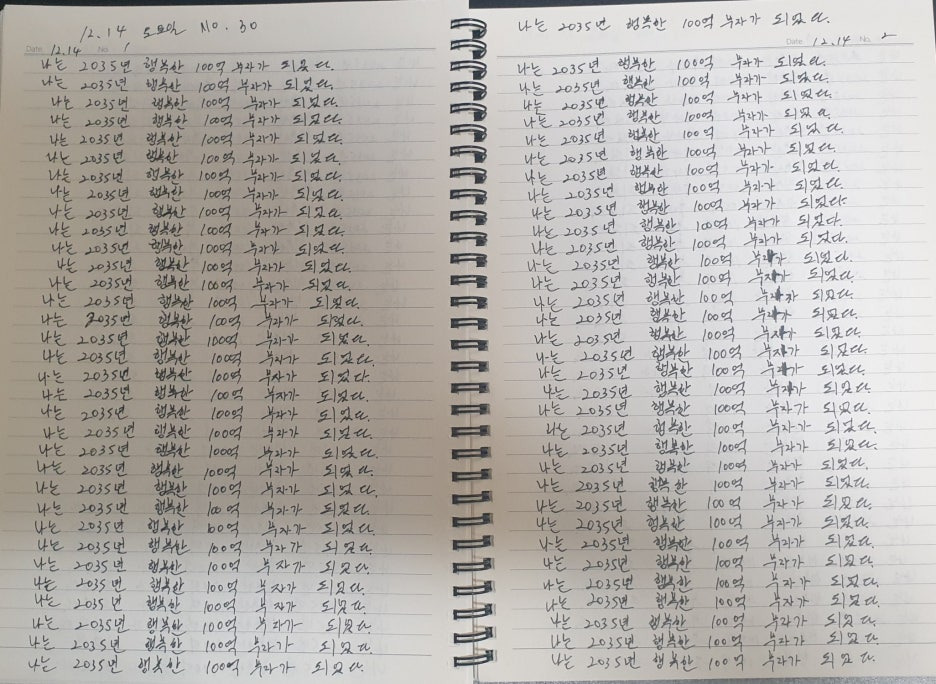 12.14 토요일 No. 30
Date 12.14 No. 1
나는 2035년 행복한 100억 부자가 되었다.
나는 2035년 행복한 100억 부자가 되었다.
나는 2035년 행복한 100억 부자가 되었다.
나는 2035년 행복한 100억 부자가 되었다.
나는 2035년 행복한 100억 부자가 되었다.
나는 2035년 행복한 100억 부자가 되었다.
나는 2035년 행복한 100억 부자가 되었다.
나는 2035년 행복한 100억 부자가 되었다.
나는 2035년 행복한 100억 부자가 되었다.
나는 2035년 행복한 100억 부자가 되었다.
나는 2035년 행복한 100억 부자가 되었다.
나는 2035년 행복한 100억 부자가 되었다.
나는 2035년 행복한 100억 부자가 되었다.
나는 2035년 행복한 100억 부자가 되었다.
나는 2035년 행복한 100억 부자가 되었다.
나는 2035년 행복한 100억 부자가 되었다.
나는 2035년 행복한 100억 부자가 되었다.
나는 2035년 행복한 100억 부자가 되었다.
나는 2035년 행복한 100억 부자가 되었다.
나는 2035년 행복한 100억 부자가 되었다.
나는 2035년 행복한 100억 부자가 되었다.
나는 2035년 행복한 100억 부자가 되었다.
나는 2035년 행복한 100억 부자가 되었다.
나는 2035년 행복한 100억 부자가 되었다.
나는 2035년 행복한 100억 부자가 되었다.
나는 2035년 행복한 100억 부자가 되었다.
나는 2035년 행복한 100억 부자가 되었다.
나는 2035년 행복한 100억 부자가 되었다.
나는 2035년 행복한 100억 부자가 되었다.
나는 2035년 행복한 100억 부자가 되었다.
나는 2035년 행복한 100억 부자가 되었다.
나는 2035년 행복한 100억 부자가 되었다.
나는 2035년 행복한 100억 부자가 되었다.
나는 2035년 행복한 100억 부자가 되었다.
Date 12.14 No. 2
나는 2035년 행복한 1000억 부자가 되었다.
나는 2035년 행복한 100억 부자가 되었다.
나는 2035년 행복한 100억 부자가 되었다.
나는 2035년 행복한 100억 부자가 되었다.
나는 2035년 행복한 100억 부자가 되었다.
나는 2035년 행복한 100억 부자가 되었다.
나는 2035년 행복한 100억 부자가 되었다.
나는 2035년 행복한 100억 부자가 되었다.
나는 2035년 행복한 100억 부자가 되었다.
나는 2035년 행복한 100억 부자가 되었다.
나는 2035년 행복한 100억 부자가 되었다.
나는 2035년 행복한 100억 부자가 되었다.
나는 2035년 행복한 100억 부자가 되었다.
나는 2035년 행복한 100억 부자가 되었다.
나는 2035년 행복한 100억 부자가 되었다.
나는 2035년 행복한 100억 부자가 되었다.
나는 2035년 행복한 100억 부자가 되었다.
나는 2035년 행복한 100억 부자가 되었다.
나는 2035년 행복한 100억 부자가 되었다.
나는 2035년 행복한 100억 부자가 되었다.
나는 2035년 행복한 100억 부자가 되었다.
나는 2035년 행복한 100억 부자가 되었다.
나는 2035년 행복한 100억 부자가 되었다.
나는 2035년 행복한 100억 부자가 되었다.
나는 2035년 행복한 100억 부자가 되었다.
나는 2035년 행복한 100억 부자가 되었다.
나는 2035년 행복한 100억 부자가 되었다.
나는 2035년 행복한 100억 부자가 되었다.
나는 2035년 행복한 100억 부자가 되었다.
나는 2035년 행복한 100억 부자가 되었다.
나는 2035년 행복한 100억 부자가 되었다.
나는 2035년 행복한 100억 부자가 되었다.
나는 2035년 행복한 100억 부자가 되었다.